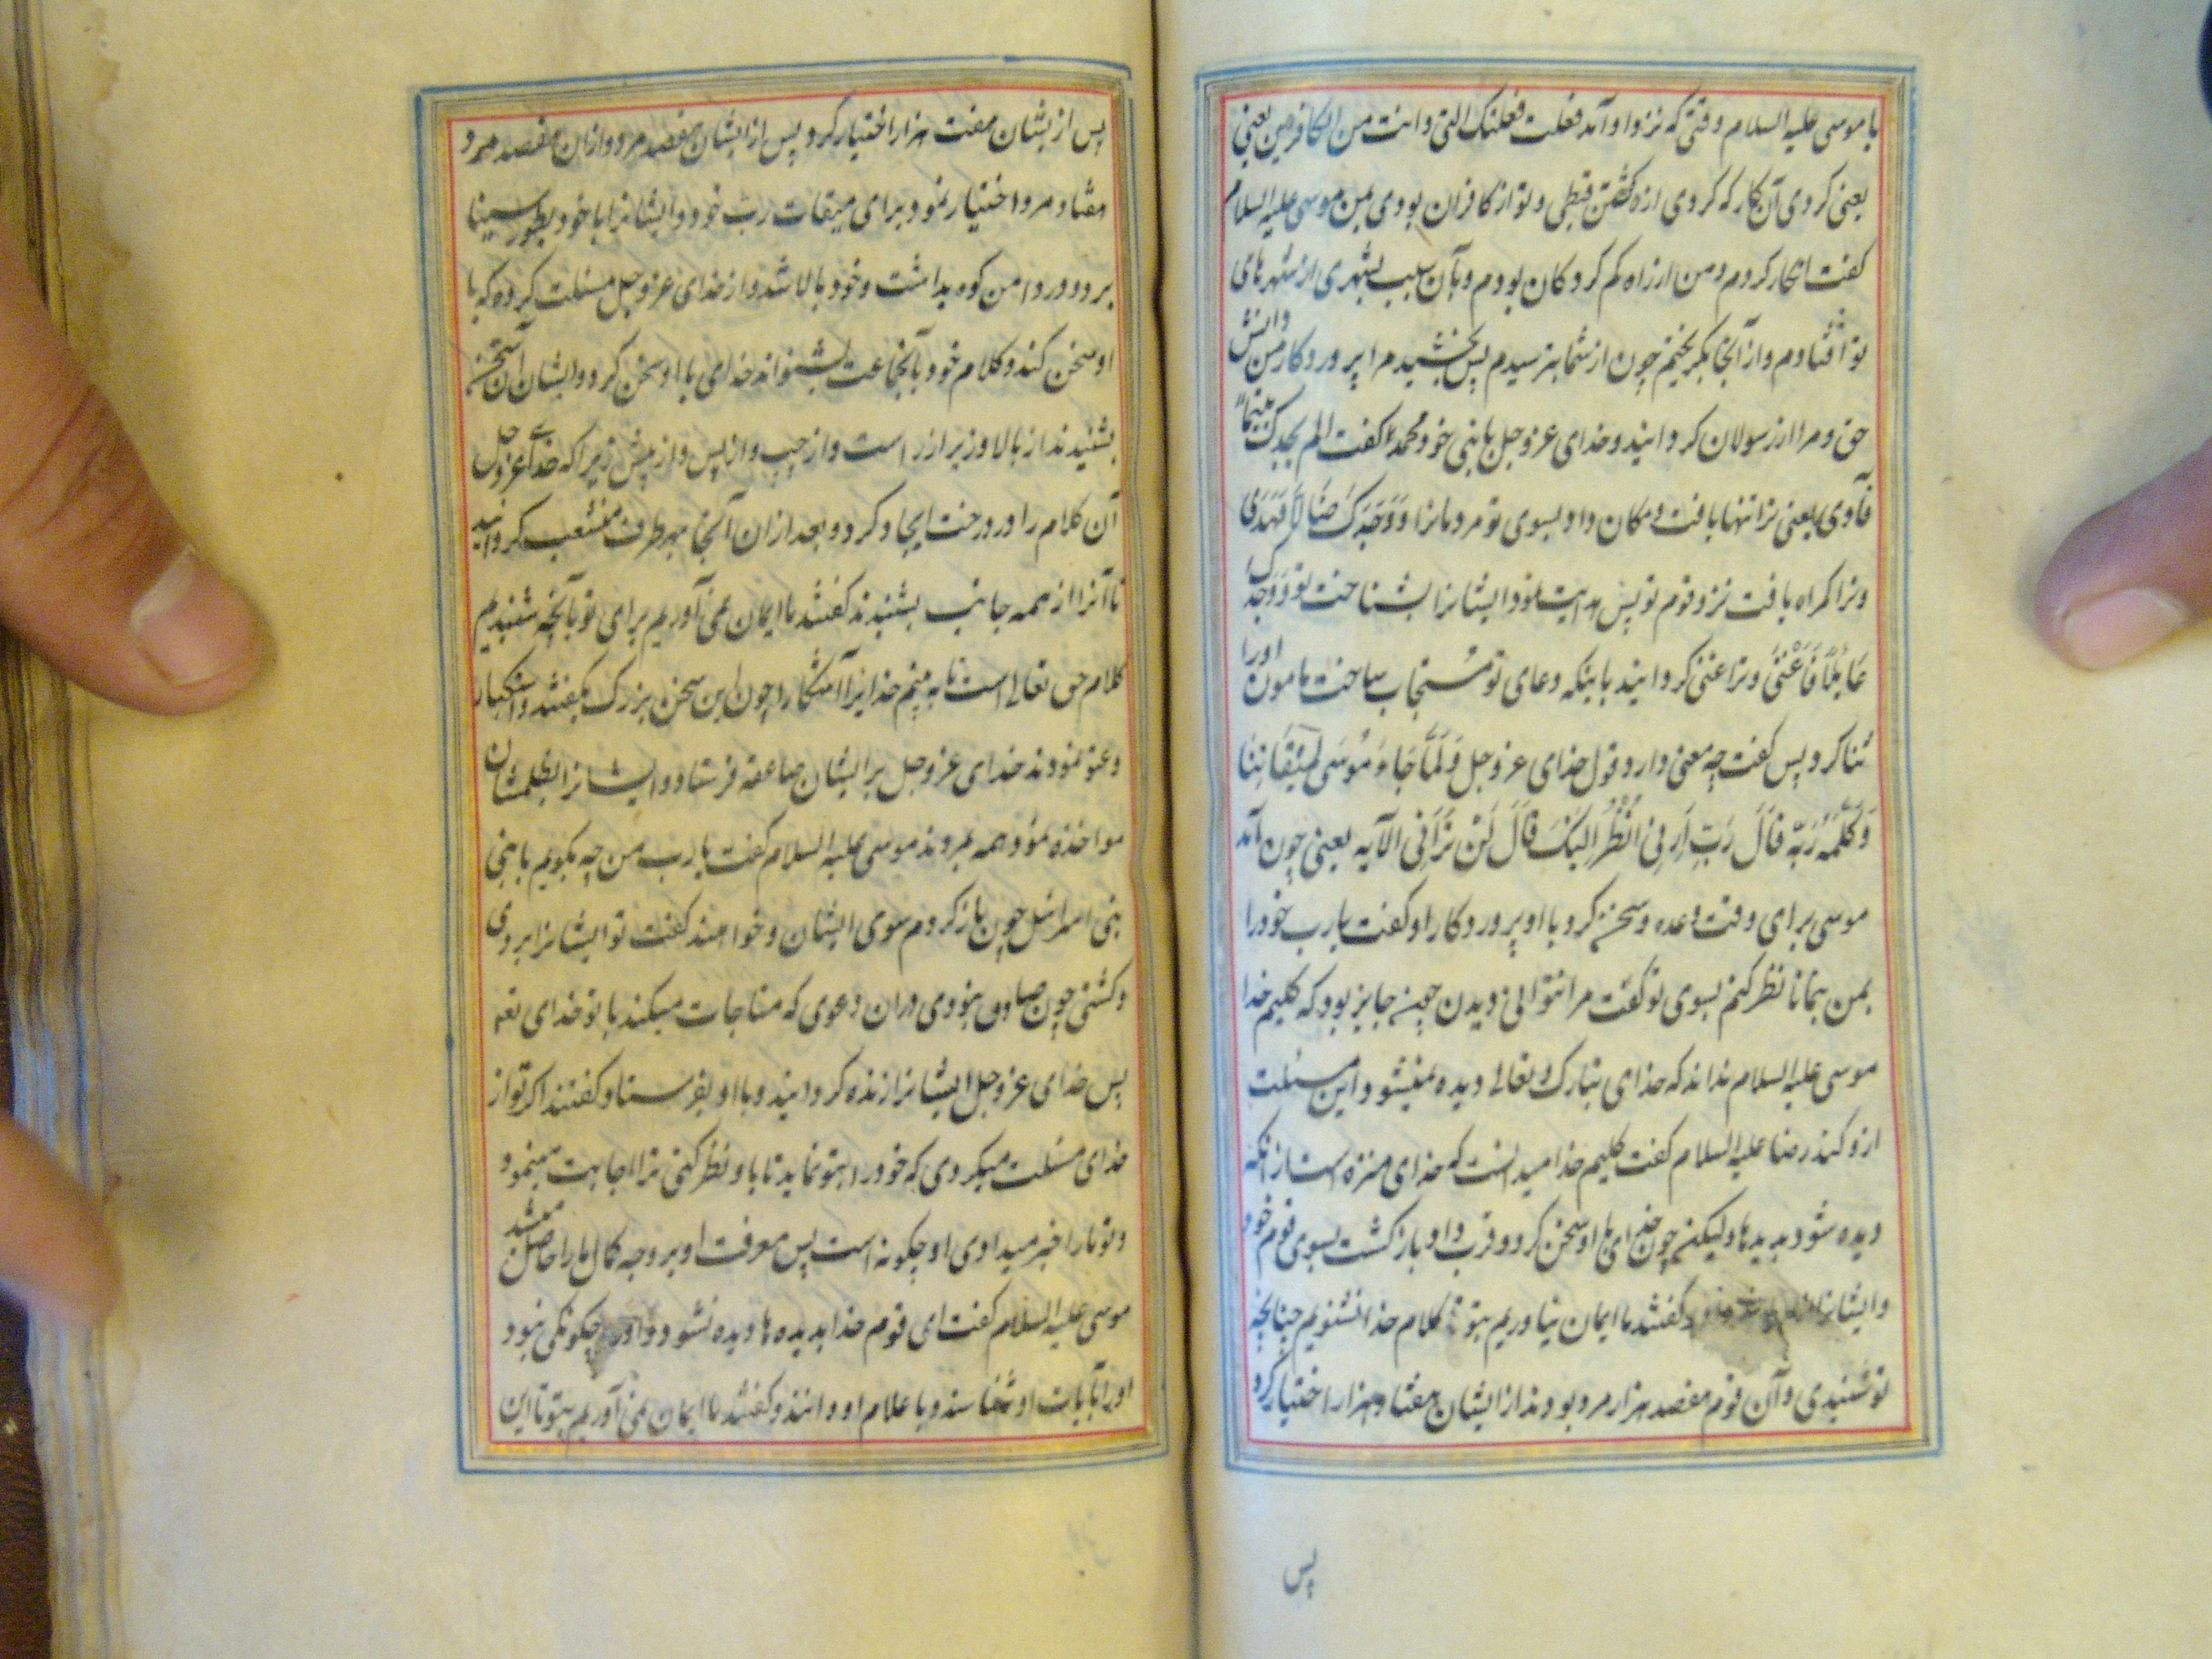 با موسی علیه السلام وقتی که نزد او آمد فعلت فعلتک التی وانت من الکافرین یعنی
یعنی کردی آن کار که کردی از کشتن قبطی و تو از کافران بودی بمن موسی علیه السلام
کفت انکار کردم و من از راه کم کردکان بودم و بآن سبب بشهری از شهرهای
تو افتادم و از آنجا بکریختم چون از شما بترسیدم پس بخشید مرا پروردکار من دانش
حق و مرا از رسولان کردانید و خدای عز وجل با نبی خود محمد کفت الم یجدک یتیماً
فَآوی یعنی ترا تنها یافت و مکان داد بسوی تو مردمانرا وَوَجَدَکَ ضَالّاً فَهَدَی
و ترا کمراه یافت نزد قوم تو پس هدایت نمود ایشانرا بشناخت تو وَوَجَدَکَ
عَائِلًا فَاَغْنَی و ترا غنی کردانید باینکه دعای تو مستجاب ساخت مامون اورا
ثنا کرد پس کفت چه معنی دارد قول خدای عز وجل وَلَمَّا جَاءَ مُوسَی لِمِیقَاتِنَا
وَکَلَّمَهُ رَبُّهُ قَالَ رَبِّ اَرِنِی اَنْظُرْ اِلَیْکَ قَالَ لَنْ تَرَانِی الآیه یعنی چون آمد
موسی برای وقت وعده و سخن کرد با او پروردکار او کفت یارب خود را
بمن بنما تا نظر کنم بسوی تو کفت مرا نتوانی دیدن چون جایز بود که کلیم خدا
موسی علیه السلام نداند که خدای تبارک و تعالی دیده نمیشود و این مسئلت
ازو کند رضا علیه السلام کفت کلیم خدا میدانست که خدای منزه است از آنکه
دیده شود بدیدها ولیکن چون خدای با او سخن کرد و قرب داد بازکشت بسوی قوم خود
و ایشانرا کفتند ما ایمان نیاوریم بتو تا کلام خدا نشنویم چنانچه
تو شنیدی و آن قوم هفصد هزار مرد بودند از ایشان هفتاد هزار اختیار کرد
پس
پس از یشان هفت هزار اختیار کرد پس از ایشان هفصد مرد و از ان هفصد مرد
هفتاد مرد اختیار نمود برای میقات رب خود و ایشانرا با خود بطور سینا
برد و در دامن کوه بداشت و خود بالا شد و از خدای عز وجل مسئلت کرد که با
او سخن کند و کلام خود بآنجماعت بشنواند خدای با او سخن کرد و ایشان آن سخن
بشنیدند از بالا و زیر از راست و از چپ و از پس و از پیش زیرا که خدای عز وجل
آن کلام را در درخت ایجاد کرد و بعد از ان آنجا بهر طرف منشعب کردانید
تا آنرا از همه جانب بشنیدند کفتند ما ایمان نمی آوریم برای تو بآنچه شنیدیم
کلام حق تعالی است تا به بینیم خدایرا آشکارا چون این سخن بزرک بکفتند و استکبار
و عتو نمودند خدای عز وجل بر ایشان صاعقه فرستاد و ایشانرا بظلمشان
مواخذه نمود همه بمردند موسی علیه السلام کفت یارب من چه بکویم با بنی
بنی اسرائیل چون باز کردم سوی ایشان و خواهند کفت تو ایشانرا بردی
و کشتی چون صادق نبودی در ان دعوی که مناجات میکند با تو خدای تعه
پس خدای عز وجل ایشانرا زنده کردانید و با او بفرستاد کفتند اکر تو از
خدای مسئلت میکردی که خود را بتو نماید تا باو نظر کنی ترا اجابت مینمود
و تو ما را خبر میدادی او چکونه است پس معرفت او بر وجه کمال ما را حاصل میشد
موسی علیه السلام کفت ای قوم خدا بدیدها دیده نشود و او را چکونکی نبود
او را بآیات او شناسند و با علام او دانند و کفتند ما ایمان نمی آوریم بتو تا این